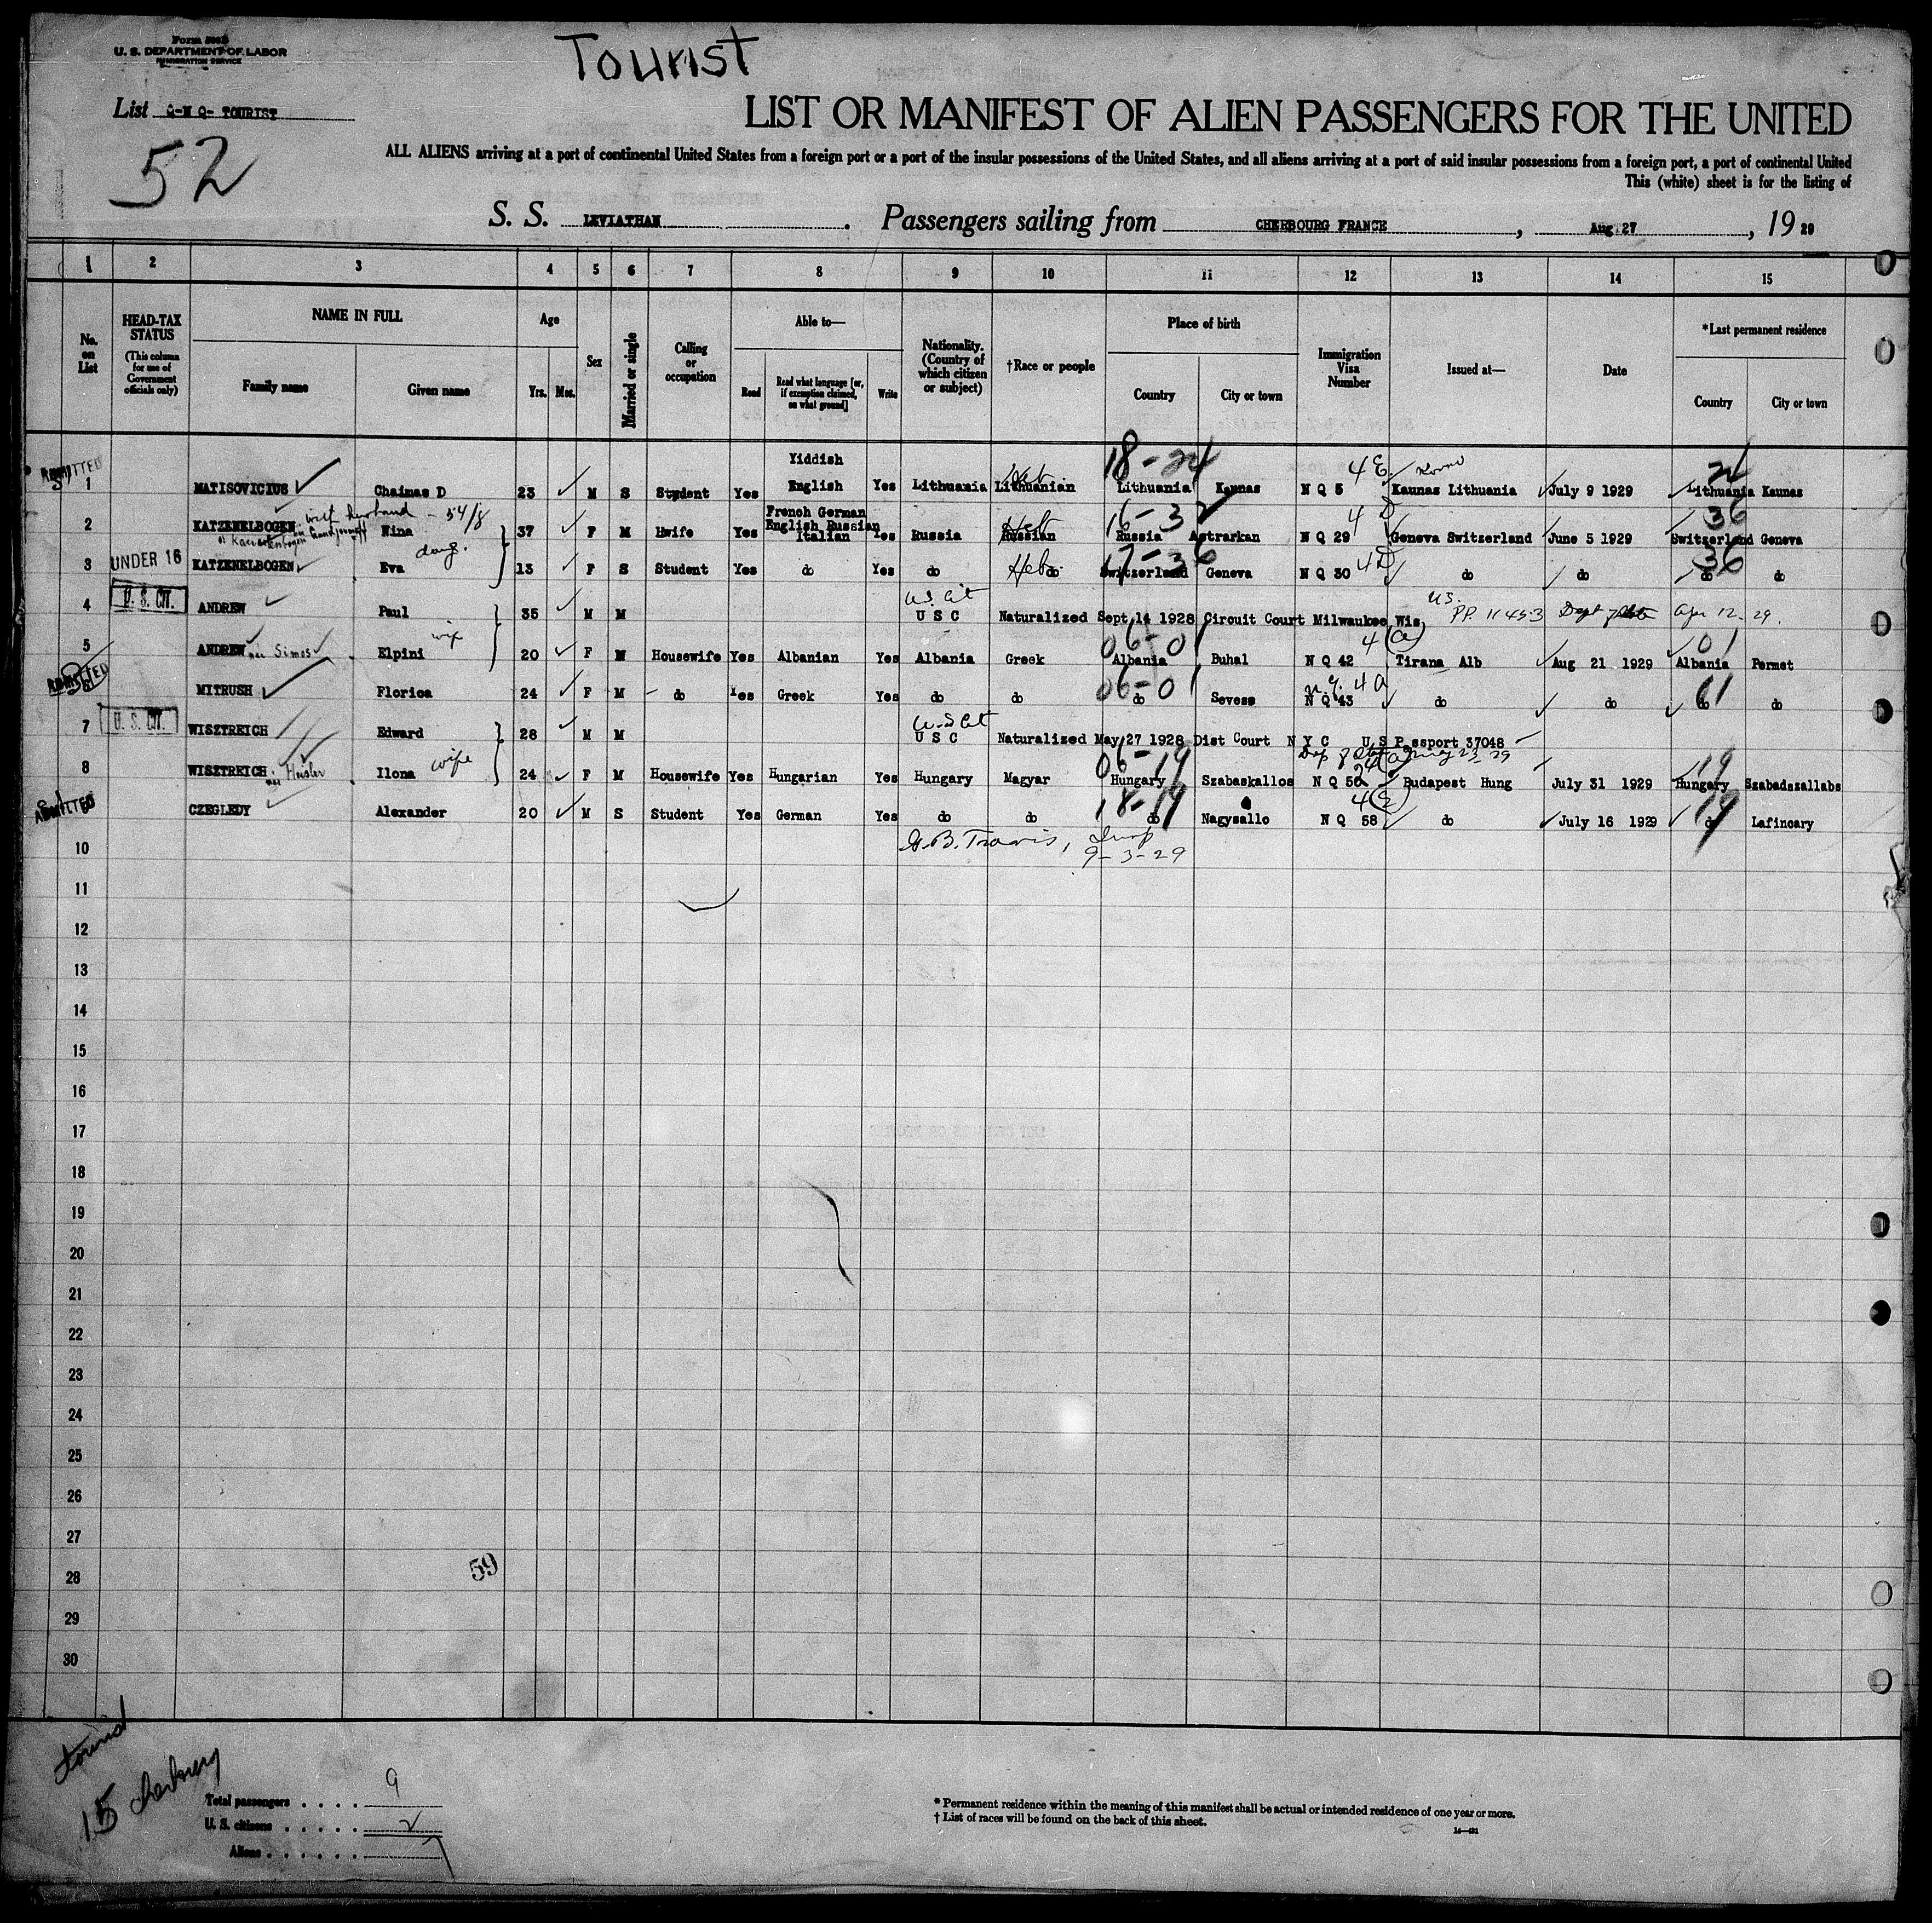 Tourist
Form 500B
U. S. DEPARTMENT OF LABOR
IMMIGRATION SERVICE
List Q-N Q- TOURIST
52
LIST OR MANIFEST OF ALIEN PASSENGERS FOR THE UNITED
ALL ALIENS arriving at a port of continental United States from a foreign port or a port of the insular possessions of the United States, and all aliens arriving at a port of said insular possessions from a foreign port, a port of continental United
This (white) sheet is for the listing of
S. S. LEVIATHAN . Passengers sailing from CHERBOURG FRANCE , Aug 27 , 19 29
1 2 3 4 5 6 7 8 9 10 11 12 13 14 15
No. on List
HEAD-TAX STATUS
(This column for use of Government officials only)
NAME IN FULL
Family name Given name
Age
Yrs. Mos.
Sex
Married or single
Calling or occupation
Able to—
Read Read what language [or, if exemption claimed, on what ground] Write
Nationality. (Country of which citizen or subject)
†Race or people
Place of birth
Country City or town
Immigration Visa Number
Issued at—
Date
*Last permanent residence
Country City or town
ADMITTED
Yiddish
18-24 4 E. Kovno 24
1 MATISOVICIUS Chaimas D 23 M S Student Yes English Yes Lithuania Lithuanian Heb. Lithuania Kaunas N Q 5 Kaunas Lithuania July 9 1929 Lithuania Kaunas
with husband - 54/8
French German
16-3 4 D 36
2 KATZENELBOGEN Nina 37 F M Hwife Yes English Russian Italian Yes Russia Russian Heb Russia Astrarkan N Q 29 Geneva Switzerland June 5 1929 Switzerland Geneva
daug.
17-36 4D 36
3 UNDER 16 KATZENELBOGEN Eva 13 F S Student Yes do Yes do do Heb. Switzerland Geneva N Q 30 do do do do
U. S. CIT.
U.S. Cit U.S.
4 ANDREW Paul 35 M M U S C Naturalized Sept 14 1928 Circuit Court Milwaukee Wis PP. 11453 Dept State Apr 12. 29.
wife
06-01 4 (a) 01
5 ANDREW nee Simos Elpini 20 F M Housewife Yes Albanian Yes Albania Greek Albania Buhal N Q 42 Tirana Alb Aug 21 1929 Albania Permet
ADMITTED
06-01 N.Q. 4a 01
6 MITRUSH Florica 24 F M do Yes Greek Yes do do do Sevess N Q 43 do do do do
U. S. CIT.
U.S Cit
7 WISZTREICH Edward 28 M M U S C Naturalized May 27 1928 Dist Court N Y C U S Passport 37048
Dep of State May 23, 29
06-19 4(a) 19
8 WISZTREICH nee Heisler Ilona wife 24 F M Housewife Yes Hungarian Yes Hungary Magyar Hungary Szabaskallos N Q 50 Budapest Hung July 31 1929 Hungary Szabadszallabs
ADMITTED
18-19 4(E) 19
9 CZEGLEDY Alexander 20 M S Student Yes German Yes do do do Nagysallo N Q 58 do July 16 1929 do Lafincary
10 G.B. Travis, Insp
9-3-29
11
12
13
14
15
16
17
18
19
20
21
22
23
24
25
26
27
59
28
29
30
tourist
15 cherbourg
Total passengers . . . . 9
U. S. citizens . . . . . 2
Aliens . . . . . . 7
* Permanent residence within the meaning of this manifest shall be actual or intended residence of one year or more.
† List of races will be found on the back of this sheet.